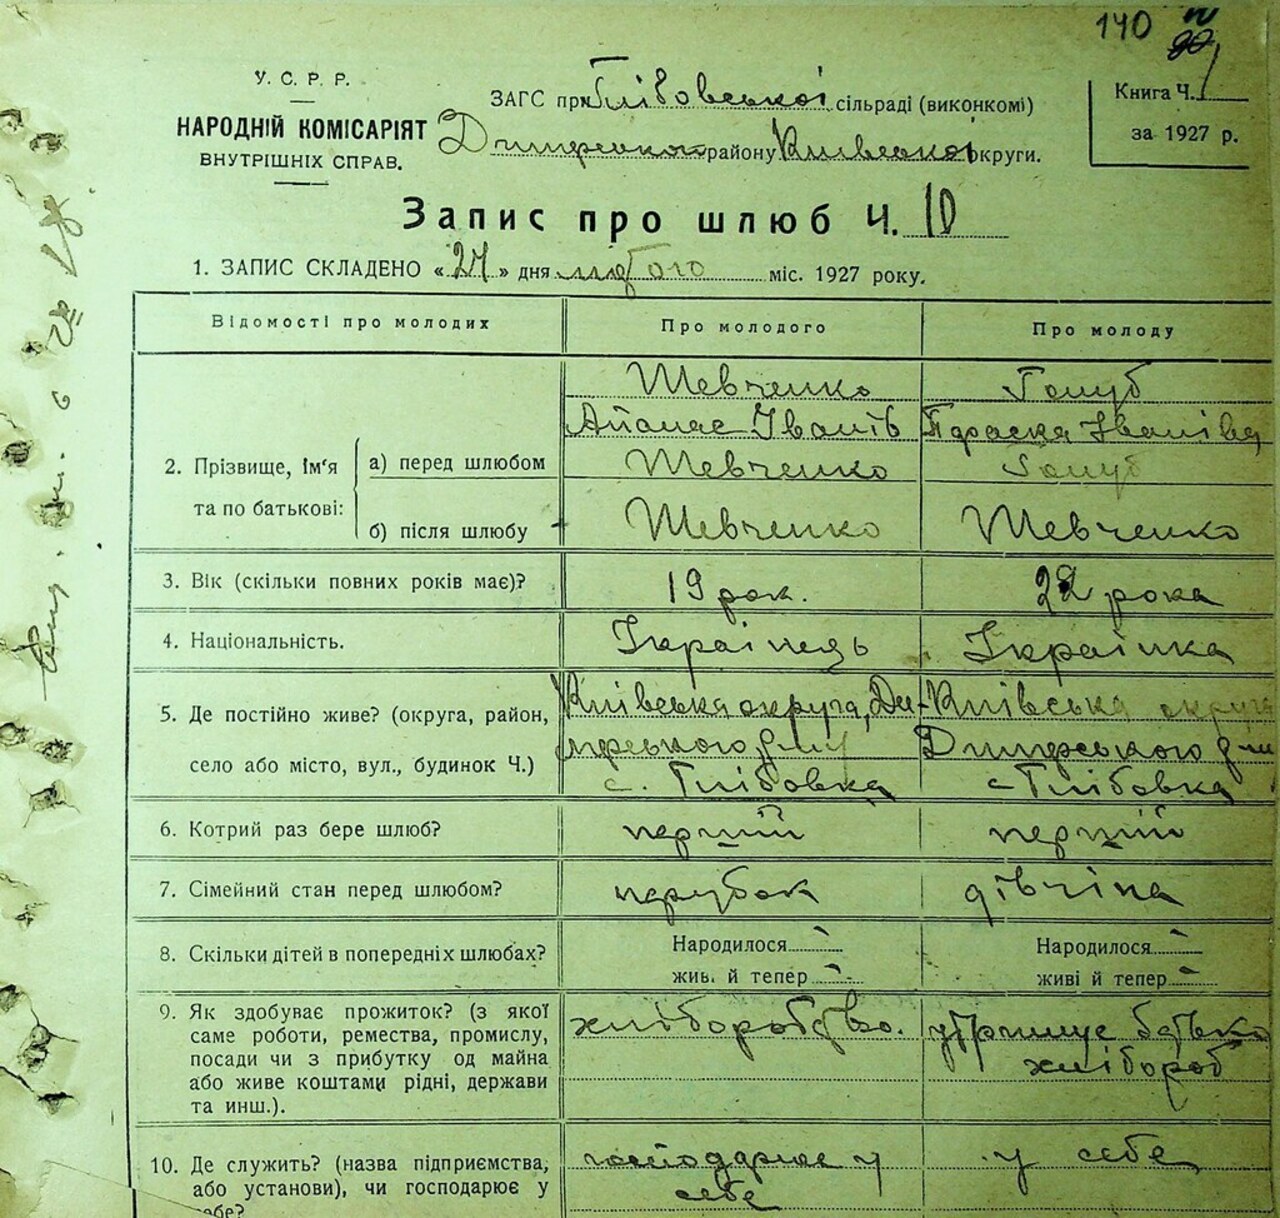 140
У. С. Р. Р.
НАРОДНІЙ КОМІСАРІЯТ
ВНУТРІШНІХ СПРАВ.
ЗАГС при Глібовської сільраді (виконкомі)
Димерського району Київської округи.
Книга Ч. 1
за 1927 р.
Запис про шлюб Ч. 10
1. ЗАПИС СКЛАДЕНО «24» дня лютого міс. 1927 року.
Відомості про молодих Про молодого Про молоду
Шевченко Голуб
Апанас Іванів Параска Іванівна
2. Прізвище, ім'я та по батькові: а) перед шлюбом Шевченко Голуб
б) після шлюбу Шевченко Шевченко
3. Вік (скільки повних років має)? 19 рок. 22 рока
4. Національність. Українець Українка
5. Де постійно живе? (округа, район, Київська округа, Ди- Київська округа
село або місто, вул., будинок Ч.) мерського Димерського
с. Глібовка с Глібовка
6. Котрий раз бере шлюб? перший перший
7. Сімейний стан перед шлюбом? парубок дівчіна
8. Скільки дітей в попередніх шлюбах? Народилося - Народилося -
живі й тепер - живі й тепер -
9. Як здобуває прожиток? (з якої хліборобство. утримує батько
саме роботи, ремества, промислу, хлібороб
посади чи з прибутку од майна
або живе коштами рідні, держави
та инш.).
10. Де служить? (назва підприємства, господарює у у себе
або установи), чи господарює у себе
себе?